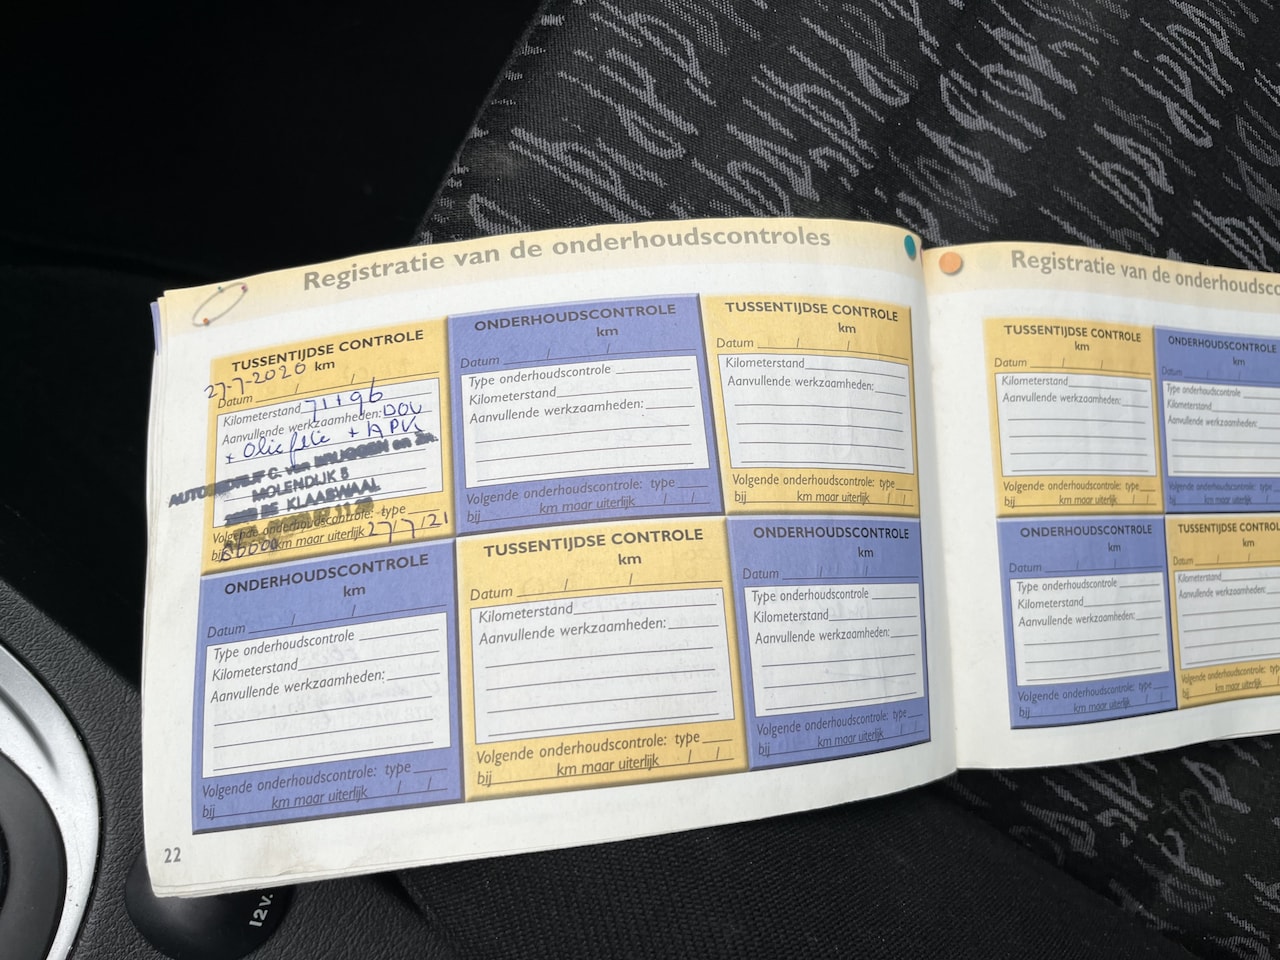 Registratie van de onderhoudscontroles
TUSSENTIJDSE CONTROLE
km
27-7-2020
Datum / /
Kilometerstand 71196
Aanvullende werkzaamheden:
+ Olie + APK
AUTOBEDRIJF C. van BRUGGEN en Zn.
MOLENDIJK 8
KLAASWAAL
Volgende onderhoudscontrole: type
bij km maar uiterlijk 27/7/21
ONDERHOUDSCONTROLE
km
Datum / /
Type onderhoudscontrole
Kilometerstand
Aanvullende werkzaamheden:
Volgende onderhoudscontrole: type
bij km maar uiterlijk / /
TUSSENTIJDSE CONTROLE
km
Datum / /
Kilometerstand
Aanvullende werkzaamheden:
Volgende onderhoudscontrole: type
bij km maar uiterlijk / /
ONDERHOUDSCONTROLE
km
Datum / /
Type onderhoudscontrole
Kilometerstand
Aanvullende werkzaamheden:
Volgende onderhoudscontrole: type
bij km maar uiterlijk / /
TUSSENTIJDSE CONTROLE
km
Datum / /
Kilometerstand
Aanvullende werkzaamheden:
Volgende onderhoudscontrole: type
bij km maar uiterlijk / /
ONDERHOUDSCONTROLE
km
Datum / /
Type onderhoudscontrole
Kilometerstand
Aanvullende werkzaamheden:
Volgende onderhoudscontrole: type
bij km maar uiterlijk / /
22
Registratie van de onderhoudsco
TUSSENTIJDSE CONTROLE
km
Datum / /
Kilometerstand
Aanvullende werkzaamheden:
Volgende onderhoudscontrole: type
bij km maar uiterlijk / /
ONDERHOUDSCONTROLE
km
Datum / /
Type onderhoudscontrole
Kilometerstand
Aanvullende werkzaamheden:
Volgende onderhoudscontrole: type
bij km maar uiterlijk /
ONDERHOUDSCONTROLE
km
Datum / /
Type onderhoudscontrole
Kilometerstand
Aanvullende werkzaamheden:
Volgende onderhoudscontrole: type
bij km maar uiterlijk / /
TUSSENTIJDSE CONTRO
km
Datum / /
Kilometerstand
Aanvullende werkzaamheden:
Volgende onderhoudscontrole: type
bij km maar uiterlijk
12 V.